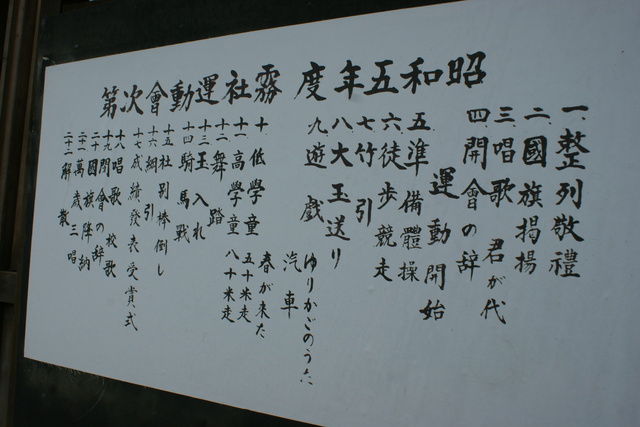 昭和五年度 霧社運動會次第
一、整列敬禮
二、國旗掲揚
三、唱歌 君が代
四、開會の辞
運動開始
五、準備體操
六、徒歩競走
七、竹引
八、大玉送り
九、遊戯 ゆりかごのうた
汽車
春が来た
十、低學童 五十米走
十一、高學童 八十米走
十二、舞踏
十三、玉入れ
十四、騎馬戦
十五、社別棒倒し
十六、綱引
十七、成績發表受賞式
十八、唱歌 校歌
十九、閉會の辞
二十、國旗降納
二十一、萬歳三唱
二十二、解散